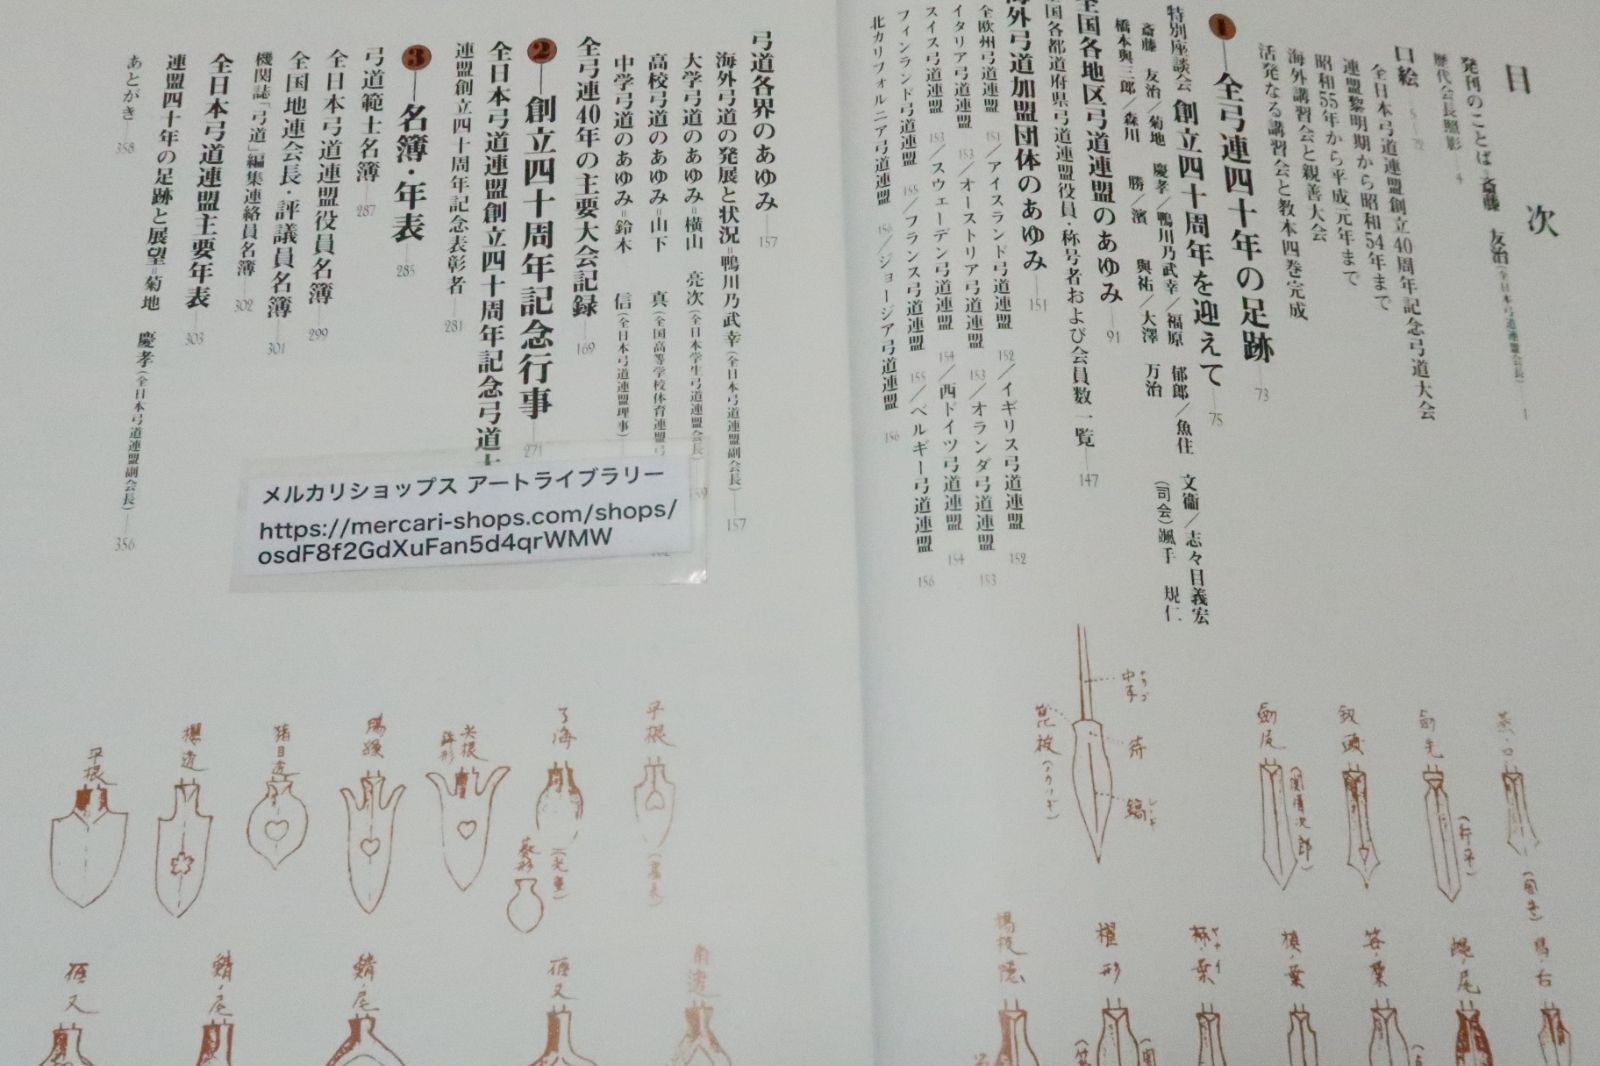 目 次
発刊のことば=斎藤 友治(全日本弓道連盟会長)—1
歴代会長照影—4
口絵—5-72
全日本弓道連盟創立40周年記念弓道大会
連盟黎明期から昭和54年まで
昭和55年から平成元年まで
海外講習会と親善大会
活発なる講習会と教本四巻完成
1—全弓連四十年の足跡—73
特別座談会 創立四十周年を迎えて—75
斎藤 友治/菊地 慶孝/鴨川乃武幸/福原 郁郎/魚住 文衞/志々目義宏
橋本與三郎/森川 勝/濱 與祐/大澤 万治 (司会)颯手 規仁
全国各地区弓道連盟のあゆみ—91
全国各都道府県弓道連盟役員・称号者および会員数一覧—147
海外弓道加盟団体のあゆみ—151
全欧州弓道連盟 151/アイスランド弓道連盟 152/イギリス弓道連盟 152
イタリア弓道連盟 153/オーストリア弓道連盟 153/オランダ弓道連盟 153
スイス弓道連盟 153/スウェーデン弓道連盟 154/西ドイツ弓道連盟 154
フィンランド弓道連盟 155/フランス弓道連盟 155/ベルギー弓道連盟 156
北カリフォルニア弓道連盟 156/ジョージア弓道連盟 156
弓道各界のあゆみ—157
海外弓道の発展と状況=鴨川乃武幸(全日本弓道連盟副会長)—157
大学弓道のあゆみ=横山 亮次(全日本学生弓道連盟会長)—159
高校弓道のあゆみ=山下 真(全国高等学校体育連盟弓
中学弓道のあゆみ=鈴木 信(全日本弓道連盟理事)
全弓連40年の主要大会記録—169
2—創立四十周年記念行事—271
全日本弓道連盟創立四十周年記念弓道大
連盟創立四十周年記念表彰者—281
3—名簿・年表—285
弓道範士名簿—287
全日本弓道連盟役員名簿—299
全国地連会長・評議員名簿—301
機関誌「弓道」編集連絡員名簿—302
全日本弓道連盟主要年表—303
連盟四十年の足跡と展望=菊地 慶孝(全日本弓道連盟副会長)—356
あとがき—358
メルカリショップス アートライブラリー
https://mercari-shops.com/shops/
osdF8f2GdXuFan5d4qrWMW
剣尻
釼頭
剣先
鎬
平根
猪目透
平根
櫂形
笹ノ葉
槙ノ葉